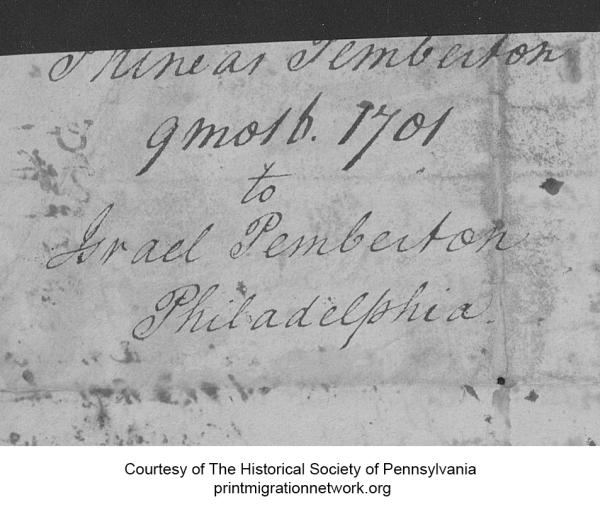 Phineas Pemberton
9mo16. 1701
to
Israel Pemberton
Philadelphia.
Courtesy of The Historical Society of Pennsylvania
printmigrationnetwork.org